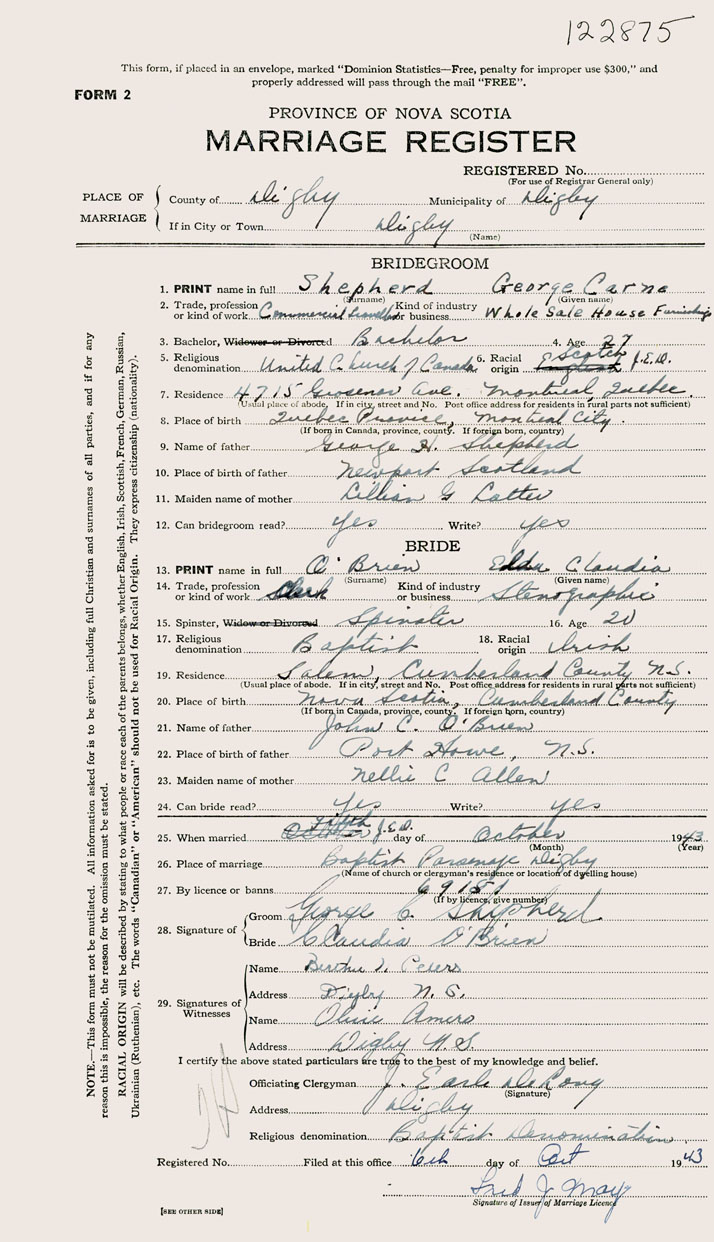 122875
This form, if placed in an envelope, marked "Dominion Statistics—Free, penalty for improper use $300," and
properly addressed will pass through the mail "FREE".
FORM 2
PROVINCE OF NOVA SCOTIA
MARRIAGE REGISTER
REGISTERED No.
(For use of Registrar General only)
PLACE OF MARRIAGE
County of Digby Municipality of Digby
If in City or Town Digby
(Name)
BRIDEGROOM
1. PRINT name in full Shepherd George Carne
(Surname) (Given name)
2. Trade, profession or kind of work Commercial traveller Kind of industry or business Whole Sale House Furnishings
3. Bachelor, Widower or Divorced Bachelor 4. Age 27
5. Religious denomination United Church of Canada 6. Racial origin English Scotch J.E.D.
7. Residence 4715 Grosvenor Ave. Montreal, Quebec.
(Usual place of abode. If in city, street and No. Post office address for residents in rural parts not sufficient)
8. Place of birth Quebec Province, Montreal City.
(If born in Canada, province, county. If foreign born, country)
9. Name of father George H. Shepherd
10. Place of birth of father Newport Scotland
11. Maiden name of mother Lillian G
12. Can bridegroom read? Yes Write? yes
BRIDE
13. PRINT name in full O'Brien Edda Claudia
(Surname) (Given name)
14. Trade, profession or kind of work Clerk Kind of industry or business Stenographic
15. Spinster, Widow or Divorced Spinster 16. Age 20
17. Religious denomination Baptist 18. Racial origin Irish
19. Residence Salem, Cumberland County N.S.
(Usual place of abode. If in city, street and No. Post office address for residents in rural parts not sufficient)
20. Place of birth Nova Scotia, Cumberland County
(If born in Canada, province, county. If foreign born, country)
21. Name of father John C. O'Brien
22. Place of birth of father Port Howe, N.S.
23. Maiden name of mother Nellie C Allen
24. Can bride read? Yes Write? yes
25. When married October Fifth J.E.D. day of October 1943
(Month) (Year)
26. Place of marriage Baptist Parsonage Digby
(Name of church or clergyman's residence or location of dwelling house)
27. By licence or banns 69151
(If by licence, give number)
28. Signature of
Groom George C. Shepherd
Bride Claudia O'Brien
29. Signatures of Witnesses
Name Peters
Address Digby N.S.
Name Olive Amero
Address Digby N.S.
I certify the above stated particulars are true to the best of my knowledge and belief.
Officiating Clergyman J. Earle DeLong
(Signature)
Address Digby
Religious denomination Baptist Denomination
Registered No. Filed at this office 6th day of Oct 1943
Fred J May
Signature of Issuer of Marriage Licence
[SEE OTHER SIDE]
NOTE.—This form must not be mutilated. All information asked for is to be given, including full Christian and surnames of all parties, and if for any
reason this is impossible, the reason for the omission must be stated.
RACIAL ORIGIN will be described by stating to what people or race each of the parents belongs, whether English, Irish, Scottish, French, German, Russian,
Ukrainian (Ruthenian), etc. The words "Canadian" or "American" should not be used for Racial Origin. They express citizenship (nationality).